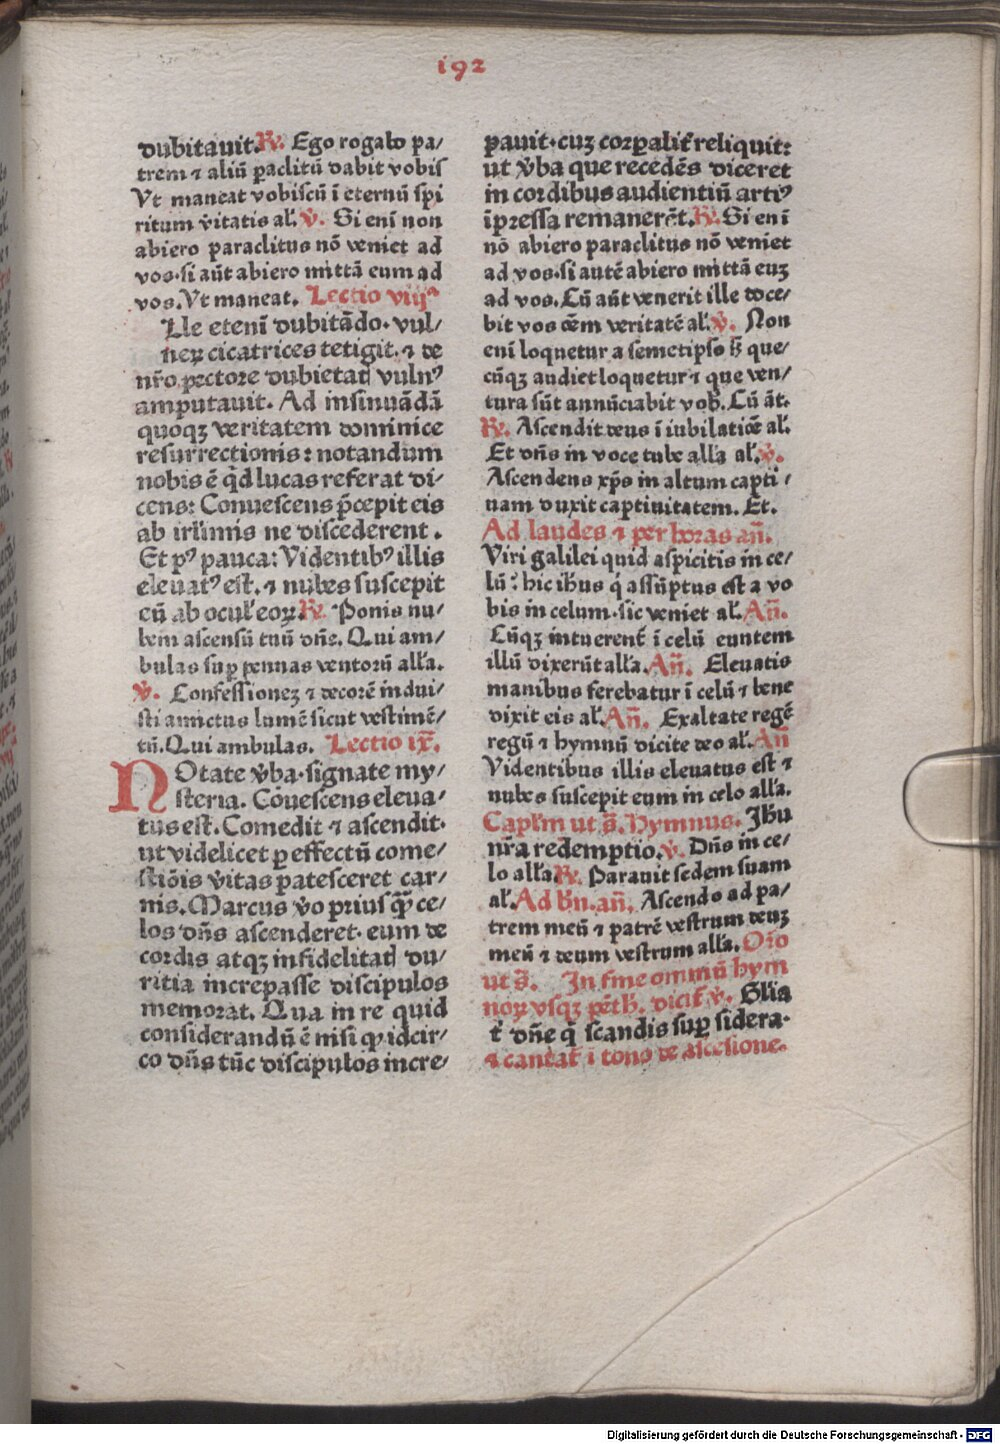 192
dubitauit. R̷. Ego rogabo pa/
trem ⁊ aliū ꝑaclitū dabit vobis
Vt maneat vobiscū ī eternū spi
ritum v̄itatis al̄. V̷. Si enī non
abiero paraclitus nō veniet ad
vos·si aūt abiero mittā eum ad
vos. Vt maneat. Lectio viijᵃ
Ille etenī dubitādo· vul/
neꝝ cicatrices tetigit. ⁊ de
nr̄o pectore dubietat vulnꝰ
amputauit. Ad insinuādā
quoqꝫ veritatem dominice
resurrectionis: notandum
nobis ē qd̄ lucas referat di-
cens: Conuescens p̄cepit eis
ab irl̄imis ne discederent.
Et pꝰ pauca: Videntibꝰ illis
eleuatꝰ est. ⁊ nubes suscepit
eū ab ocul̄ eoꝝ. R̷. Ponis nu/
bem ascensū tuū dn̄e. Qui am/
bulas suꝑ pennas ventorū all̄a.
V̷. Confessioneꝫ ⁊ decorē indui/
sti amictus lumē sicut vestimē/
tū. Qui ambulas. Lectio ix.
NOtate v̄ba·signate my/
steria. Cōuescens eleua/
tus est. Comedit ⁊ ascendit·
ut videlicet ꝑ effectū come/
stiōis v̄itas patesceret car/
nis. Marcus v̄o prius ꝙ̄ ce/
los dn̄s ascenderet· eum de
cordis atqꝫ infidelitat du/
ritia increpasse discipulos
memorat. Qua in re quid
considerandū ē nisi ꝙ idcir/
co dn̄s tūc discipulos incre/
pauit·cuꝫ corꝑalit̄ reliquit:
ut v̄ba que recedēs diceret
in cordibus audientiū artiꝰ
īpressa remanerēt. R̷. Si en ī
nō abiero paraclitus nō veniet
ad vos·si autē abiero mittā euꝫ
ad vos. Cū aūt venerit ille doce/
bit vos oēm veritatē al̄. V̷. Non
enī loquetur a semetipso sꝫ que/
cūqꝫ audiet loquetur ⁊ que ven/
tura sūt annūciabit vob̄. Cū āt.
R̷. Ascendit deus ī iubilatiōe al̄.
Et dn̄s in voce tube all̄a al̄. V̷.
Ascendens xp̄s in altum capti/
uam duxit captiuitatem. Et.
Ad laudes ⁊ per horas an̄.
Viri galilei quid aspicitis in ce/
lū? hic ih̄us q̇ assūptus est a vo
bis in celum·sic veniet al̄. An̄.
Cūqꝫ intuerent̄ ī celū euntem
illū dixerūt all̄a. An̄. Eleuatis
manibus ferebatur ī celū ⁊ bene
dixit eis al̄. An̄. Exaltate regē
regū ⁊ hymnū dicite deo al̄. An̄
Videntibus illis eleuatus est ⁊
nubes suscepit eum in celo all̄a.
Capl̄m ut s̄. Hymnus. Jh̄u
nr̄a redemptio. V̷. Dn̄s in ce/
lo all̄a R̷. Parauit sedem suam
al̄. Ad bn̄. an̄. Ascendo ad pa/
trem meū ⁊ patrē vestrum deuꝫ
meū ⁊ deum vestrum all̄a. Or̄o
ut s̄. In fine omniū hym
noꝝ vsqꝫ pēth̄. dicit̄ V̷. Gl̄ia
t̄ dn̄e q̇ scandis suꝑ sidera·
⁊ cantat̄ ī tono de ascēsione.
Digitalisierung gefördert durch die Deutsche Forschungsgemeinschaft - DFG